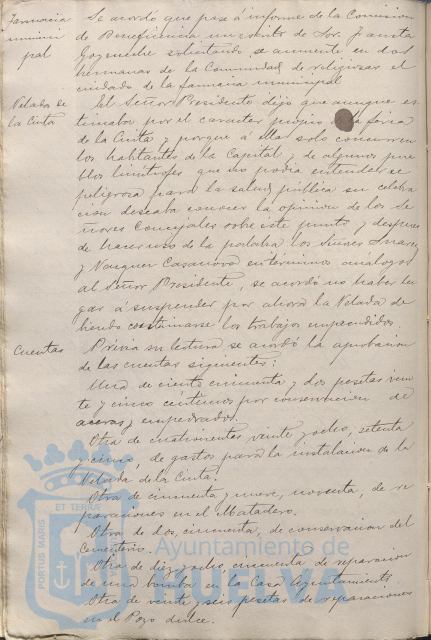 Farmacia
munici
pal
Se acordó que pase á informe de la Comision
de Beneficencia un escrito de Sor. Janeta
Goyeneche solicitando se aumente en dos
hermanas de la Comunidad de religiosas el
cuidado de la farmacia municipal
Velada de
la Cinta
El Señor Presidente dijo que aunque es
timaba por el caracter propio de la feria
de la Cinta y porque á ella solo concurren
los habitantes de la Capital y de algunos pue
blos limitrofes que no podia entenderse
peligrosa para la salud publica su celebra
cion deseaba conocer la opinion de los Se
ñores Concejales sobre este punto y despues
de hacer uso de la palabra los Señores Suarez
y Vazquez Casanova en términos análogos
al Señor Presidente, se acordó no haber lu
gar á suspender por ahora la Velada de
biendo continuarse los trabajos emprendidos
Cuentas
Prévia su lectura se acordó la aprobacion
de las cuentas siguientes:
Una de ciento cincuenta y dos pesetas vein
te y cinco céntimos por conservacion de
aceras y empedrados.
Otra de cuatrocientas veinte y ocho, setenta
y cinco, de gastos para la instalacion de la
Velada de la Cinta.
Otra de cincuenta y nueve, noventa, de re
paraciones en el Matadero.
Otra de dos, cincuenta, de conservacion del
Cementerio.
Otra de diez y ocho, cincuenta de reparacion
de una bomba en la Casa Ayuntamiento.
Otra de veinte y seis pesetas de reparaciones
en el Pozo dulce.
PORTUS MARIS ET TERRAE
Ayuntamiento de
HUELVA